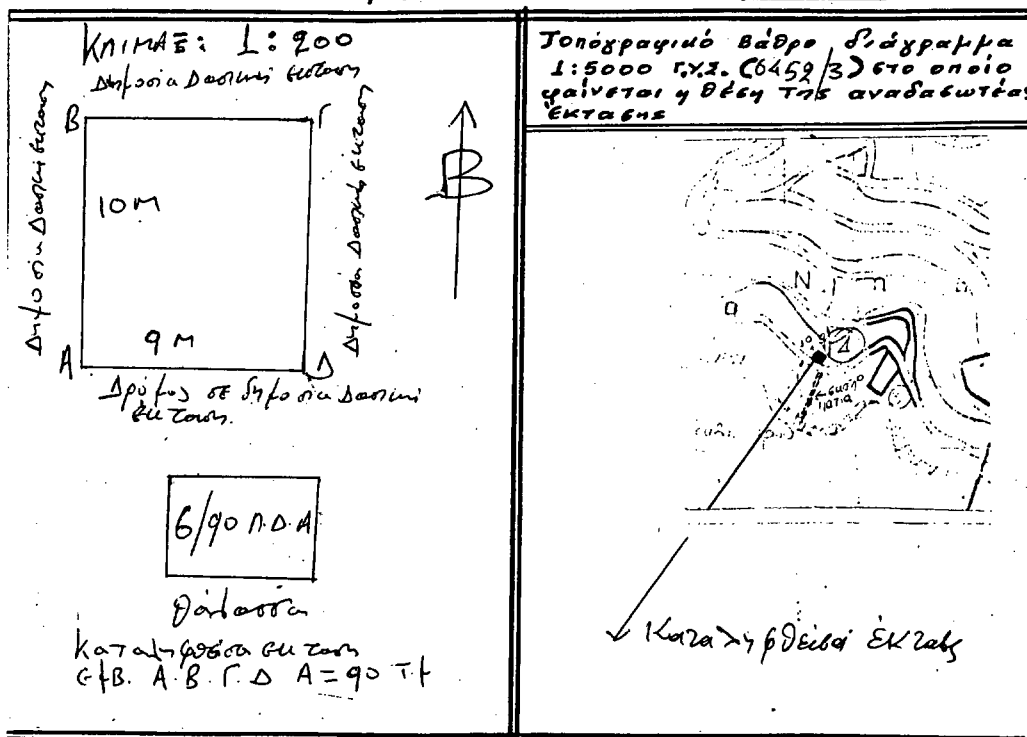 ΚΛΙΜΑΞ: 1:200
Δημοσία Δασική έκταση
Β
Γ
Δημοσία Δασική έκταση
10 Μ
Δημοσία Δασική έκταση
9 Μ
Α
Δ
Δρόμος σε δημοσία Δασική
έκταση.
Β
6/90 Π.Δ.Α
θάλασσα
Καταληφθείσα έκταση
εμβ. Α.Β.Γ.Δ Α = 90 Τ.μ
Τοπογραφικό Βάθρο διάγραμμα
1:5000 Γ.Υ.Σ. (6452/3) στο οποίο
φαίνεται η θέση της αναδασωτέας
έκτασης
Ν
Δ
Καταληφθείσα έκταση